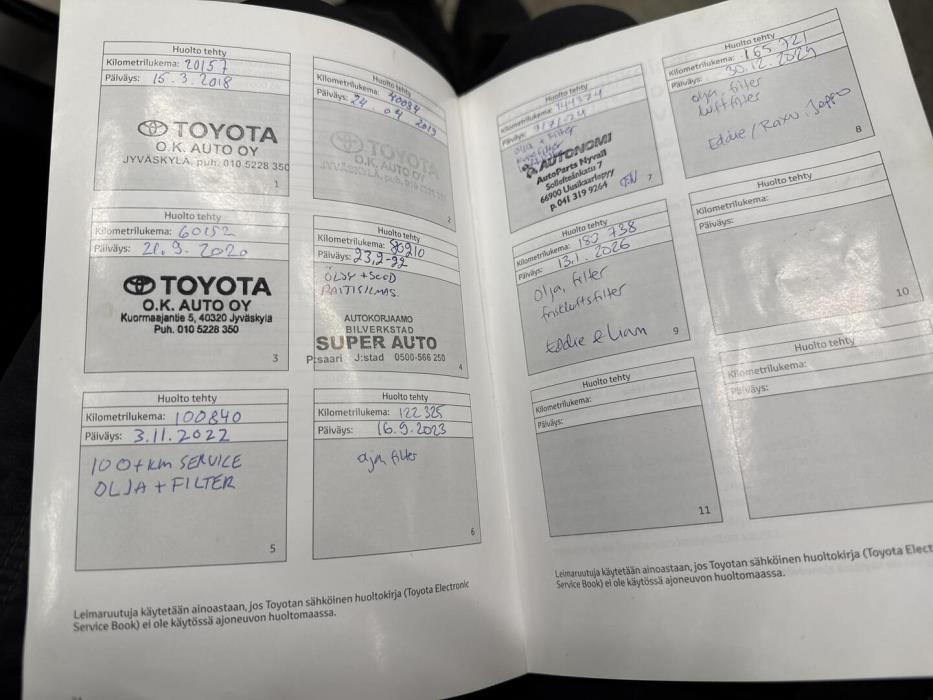 Huolto tehty
Kilometrilukema: 20157
Päiväys: 15.3.2018
TOYOTA
O.K. AUTO OY
JYVÄSKYLÄ, puh. 010 5228 350
1
Huolto tehty
Kilometrilukema: 40084
Päiväys: 24 04 2019
TOYOTA
O.K. AUTO OY
JYVÄSKYLÄ, puh. 010 5228
2
Huolto tehty
Kilometrilukema: 60152
Päiväys: 21.9.2020
TOYOTA
O.K. AUTO OY
Kuormaajantie 5, 40320 Jyväskylä
Puh. 010 5228 350
3
Huolto tehty
Kilometrilukema: 80210
Päiväys: 23,2-22
ÖLJY + SUOD
RAITISILMAS.
AUTOKORJAAMO
BILVERKSTAD
SUPER AUTO
P:saari J:stad 0500-566 250
4
Huolto tehty
Kilometrilukema: 100840
Päiväys: 3.11.2022
100+km SERVICE
OLJA + FILTER
5
Huolto tehty
Kilometrilukema: 122325
Päiväys: 16.9.2023
filter
6
Leimaruutuja käytetään ainoastaan, jos Toyotan sähköinen huoltokirja (Toyota Electronic
Service Book) ei ole käytössä ajoneuvon huoltomaassa.
Huolto tehty
Kilometrilukema: 144374
Päiväys:
olja + filter
AUTONOMI
AutoParts Nyvall
66900 Uusikaarlepyy
p. 041 319 9264
7
Huolto tehty
Kilometrilukema: 165 721
Päiväys: 30.12.2024
olja, filter
luftfilter
Eddie /
8
Huolto tehty
Kilometrilukema: 183 738
Päiväys: 13.1.2026
Olja, filter
friskluftsfilter
Eddie & Liam
9
Huolto tehty
Kilometrilukema:
Päiväys:
10
Huolto tehty
Kilometrilukema:
Päiväys:
11
Huolto tehty
Kilometrilukema:
Päiväys:
Leimaruutuja käytetään ainoastaan, jos Toyotan sähköinen huoltokirja (Toyota Elect
Service Book) ei ole käytössä ajoneuvon huoltomaassa.